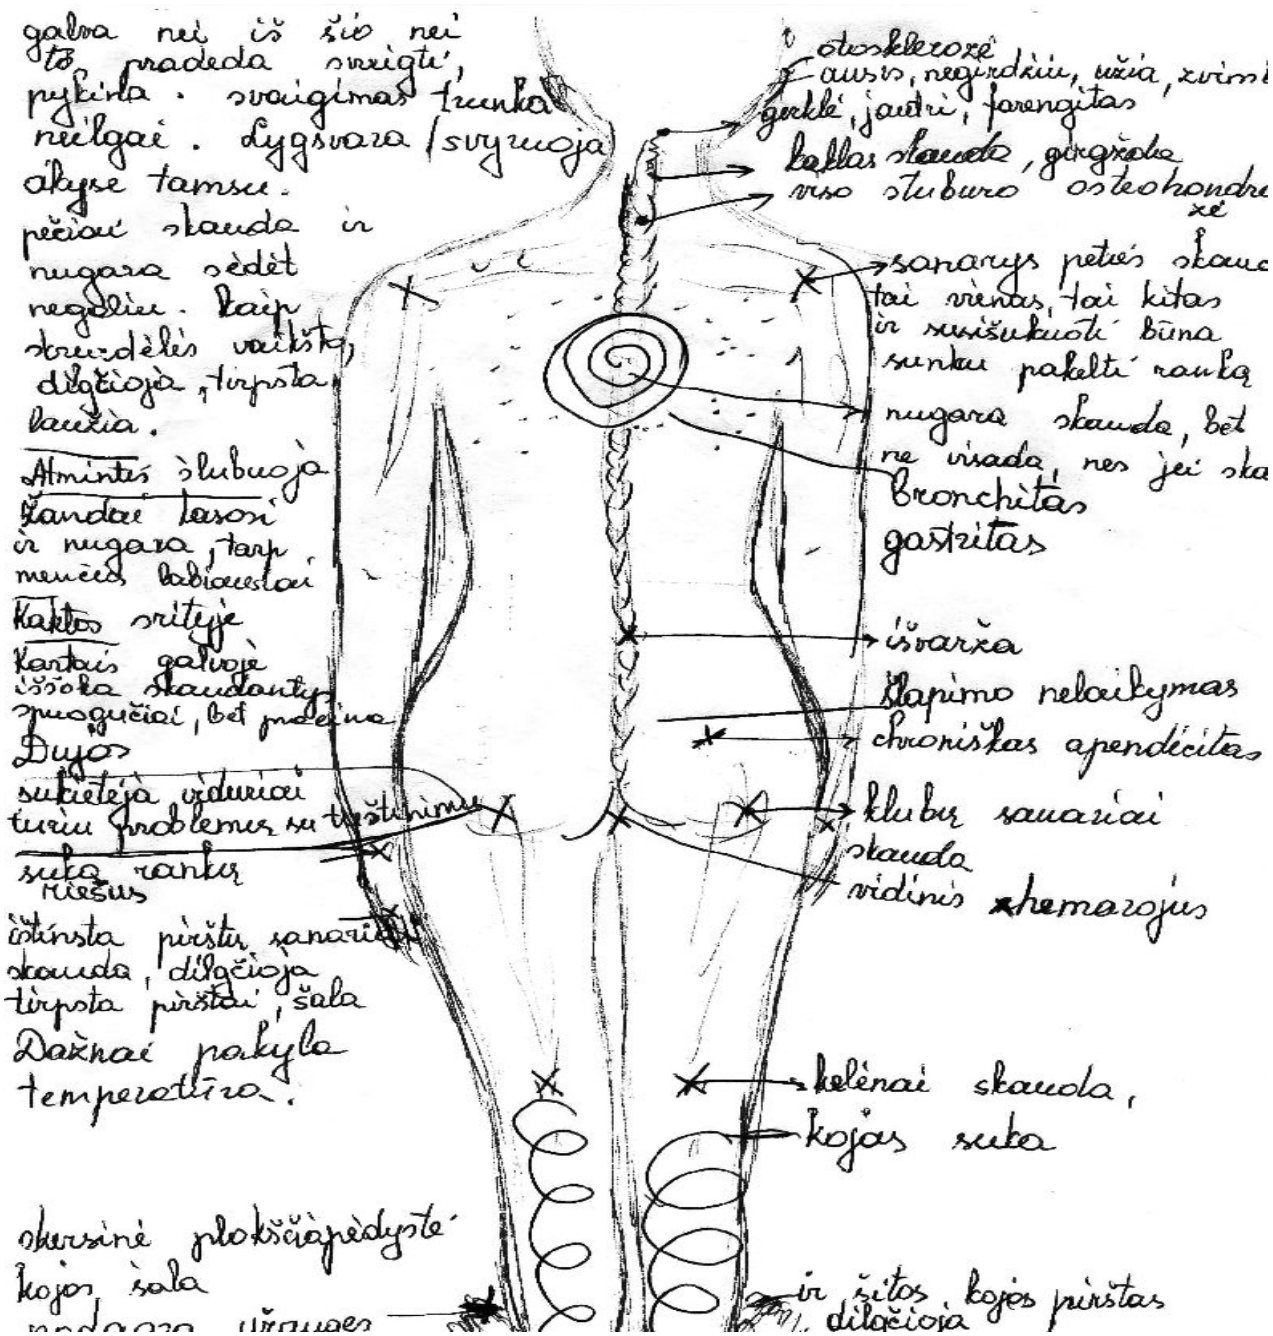 galva nei iš šio nei
to pradeda svaigti,
pykina. svaigimas trunka
neilgai. Lygsvara / svyruoja
akyse tamsu.
pečiai skauda ir
nugara sėdėt
negaliu. kaip
skruzdėlės vaikšto,
dilgčioja, tirpsta
laužia.
Atmintis šlubuoja
Žandai tasosi
ir nugara, tarp
menčių labiausiai
Kaktos srityje
Kartais galvoje
iššoka skaudantys
spuogučiai, bet praeina
Dujos
sukietėja viduriai
turiu problemų su tuštinimu
suka rankų
riešus
ištinsta pirštų sanariai
skauda, dilgčioja
tirpsta pirštai, šala
Dažnai pakyla
temperatūra.
skersinė plokščiapėdystė
kojos šala
podagra užauges
otosklerozė
ausis, negirdžiu, užia,
gerklė, jautri, farengitas
kaklas skauda, girgžda
viso stuburo osteohondro
zė
sanarys peties skauda
tai vienas, tai kitas
ir susišukuoti būna
sunku pakelti ranką
nugara skauda, bet
ne visada, nes jei ska
Bronchitas
gastritas
išvarža
šlapimo nelaikymas
chroniškas apendicitas
klubų sanariai
skauda
vidinis hemarojus
kelėnai skauda,
kojas suka
ir šitos kojos pirštas
dilgčioja